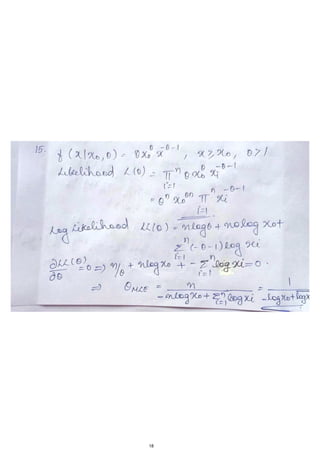 15. f(x|x₀,θ) = θx₀^θ x^(-θ-1), x ≥ x₀, θ > 1
Likelihood L(θ) = ∏ⁿ_(i=1) θx₀^θ xᵢ^(-θ-1)
= θⁿ x₀^(θn) ∏ⁿ_(i=1) xᵢ^(-θ-1)
Log Likelihood LL(θ) = nlogθ + nθlog x₀+
Σⁿ_(i=1) (-θ-1) log xᵢ
∂LL(θ)/∂θ = 0 => n/θ + nlog x₀ + - Σⁿ_(i=1) log xᵢ = 0.
=> θ_MLE = n/(-nlog x₀ + Σⁿ_(i=1) log xᵢ) = 1/(-log x₀ + log x
18